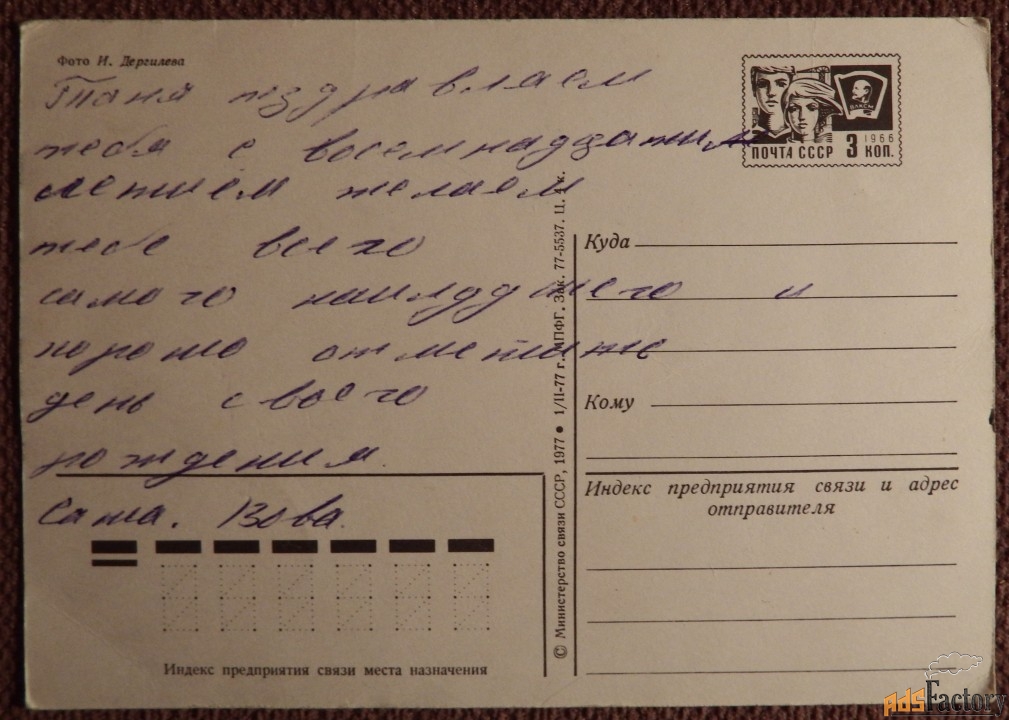 Фото И. Дергилева
Таня поздравляем
тебя с восемнадцатим
летием желаем
тебе всего
самого наилудшего и
хорошо отметить
день своего
рождения.
Саша. Вова.
ВЛКСМ
1966
ПОЧТА СССР 3 КОП.
Куда
Кому
Индекс предприятия связи и адрес
отправителя
© Министерство связи СССР, 1977 ● 1/II-77 г. МПФГ. Зак. 77-5537. Ц. 4 к.
Индекс предприятия связи места назначения
AdsFactory